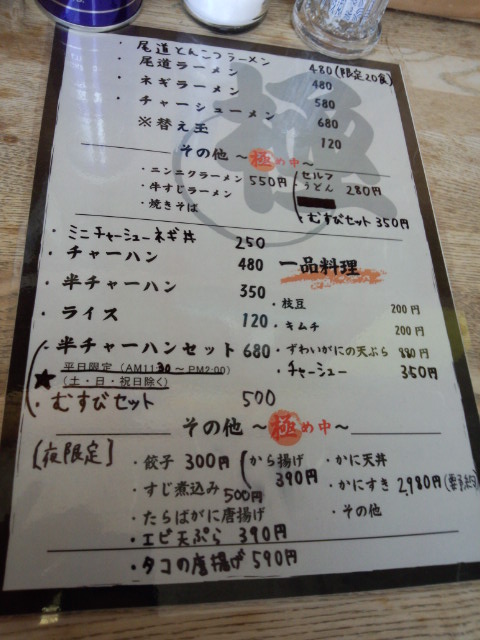 ・尾道とんこつラーメン 480(限定20食)
・尾道ラーメン 480
・ネギラーメン 580
・チャーシューメン 680
※替え玉 120
その他 〜極め中〜
・ニンニクラーメン 550円
・牛すじラーメン
・焼きそば
・セルフうどん 280円
・むすびセット 350円
極
・ミニチャーシューネギ丼 250
・チャーハン 480
・半チャーハン 350
・ライス 120
・半チャーハンセット 680
平日限定(AM11:30〜PM2:00)
★(土・日・祝日除く)
・むすびセット 500
一品料理
・枝豆 200円
・キムチ 200円
・ずわいがにの天ぷら 880円
・チャーシュー 350円
その他 〜極め中〜
[夜限定]
・餃子 300円
・すじ煮込み 500円
・たらばがに唐揚げ
・エビ天ぷら 390円
・タコの唐揚げ 590円
・から揚げ 390円
・かに天丼
・かにすき 2,980円
・その他